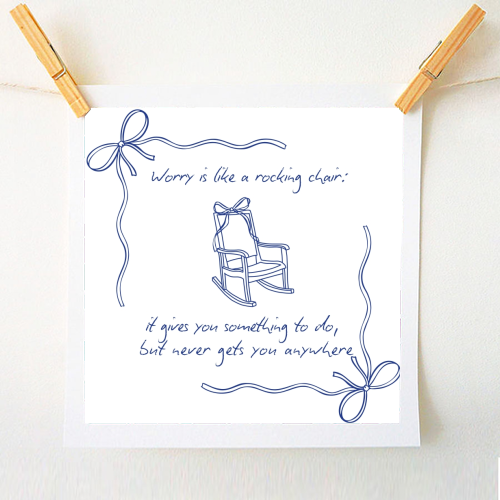 Worry is like a rocking chair:
it gives you something to do,
but never gets you anywhere